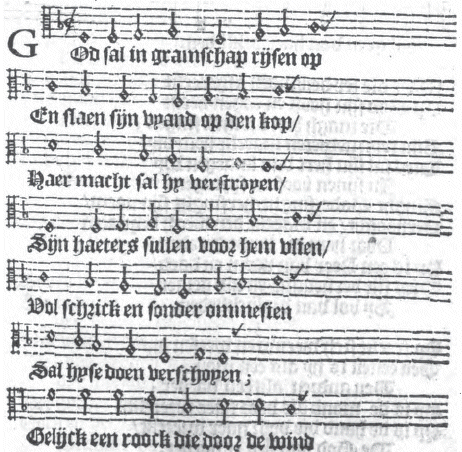 God sal in gramschap rijsen op
En slaen sijn vyand op den kop/
Haer macht sal hy verstroyen/
Sijn haeters sullen voor hem vlien/
Vol schrick en sonder ommesien
Sal hyse doen verschoyen;
Gelijck een roock die door de wind